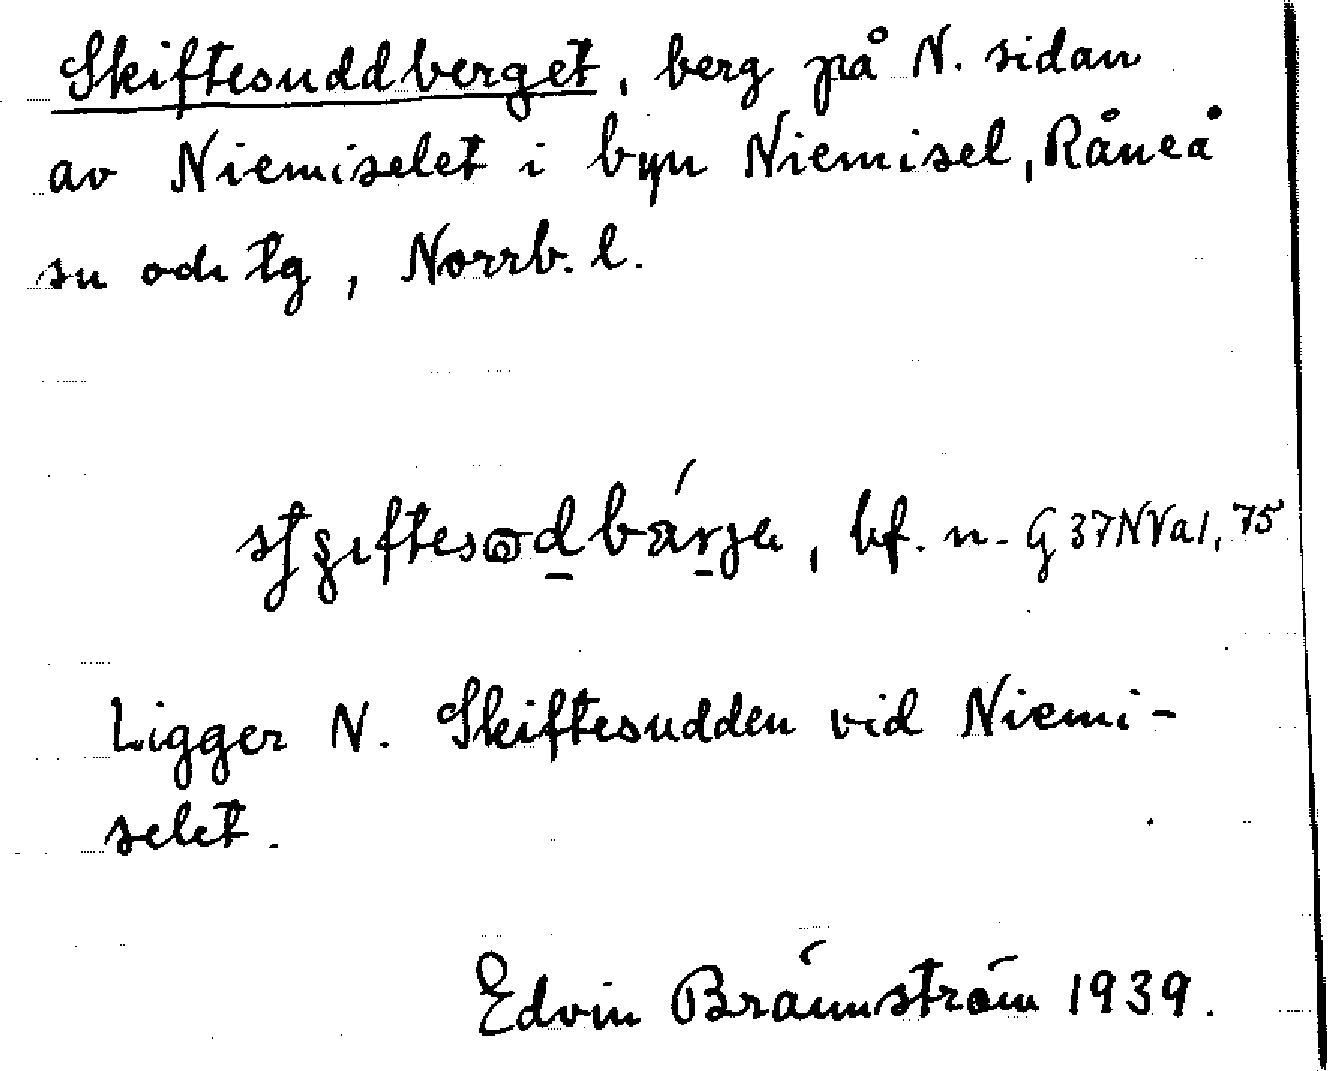 Skiftesuddberget, berg på N. sidan
av Niemiselet i byn Niemisel, Råneå
sn och tg, Norrb. l.
bf. n. G37NVa1, 75
Ligger N. Skiftesudden vid Niemi-
selet.
Edvin Brännström 1939.